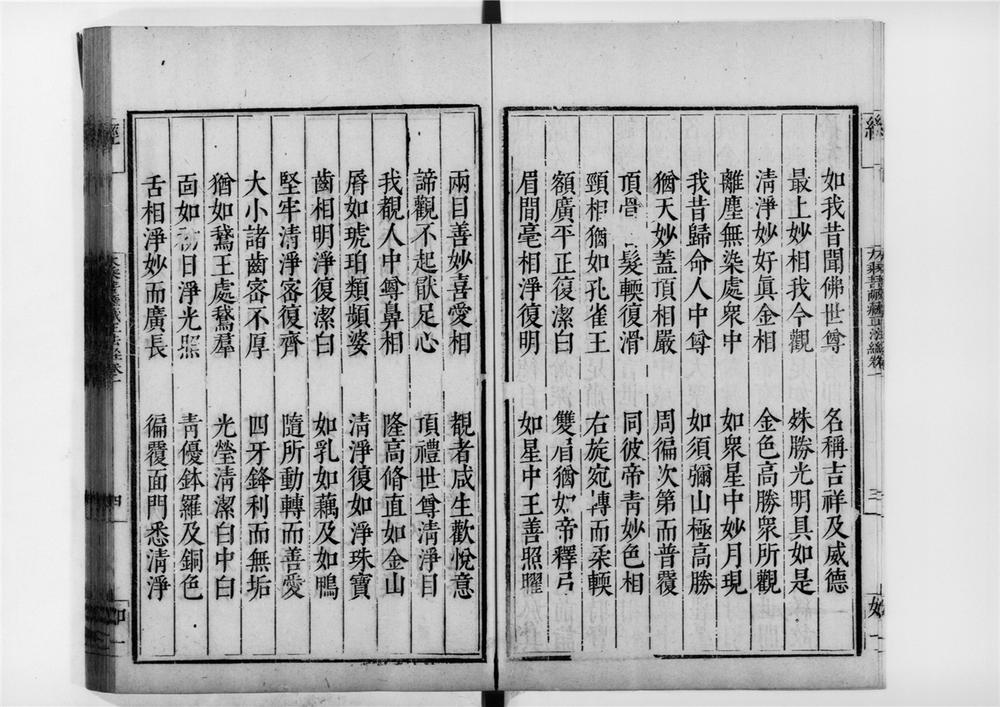 經
大乘菩薩藏正法經卷一
三
如我昔聞佛世尊 名稱吉祥及威德
最上妙相我今觀 姝勝光明具如是
清淨妙好眞金相 金色高勝衆所觀
離塵無染處衆中 如衆星中妙月現
我昔歸命人中尊 如須彌山極高勝
猶天妙蓋頂相嚴 周徧次第而普覆
頂 髮輭復滑 同彼帝青妙色相
頸相猶如孔雀王 右旋宛轉而柔輭
額廣平正復潔白 雙眉猶如帝釋弓
眉間毫相淨復明 如星中王善照曜
兩目善妙喜愛相 覩者咸生歡悅意
諦觀不起猒足心 頂禮世尊清淨目
我覩人中尊鼻相 隆高脩直如金山
脣如琥珀類頻婆 清淨復如淨珠寶
齒相明淨復潔白 如乳如藕及如鴨
堅牢清淨密復齊 隨所動轉而善愛
大小諸齒密不厚 四牙鋒利而無垢
猶如鵞王處鵞羣 光瑩清潔白中白
面如初日淨光照 青優鉢羅及銅色
舌相淨妙而廣長 徧覆面門悉清淨
經
四